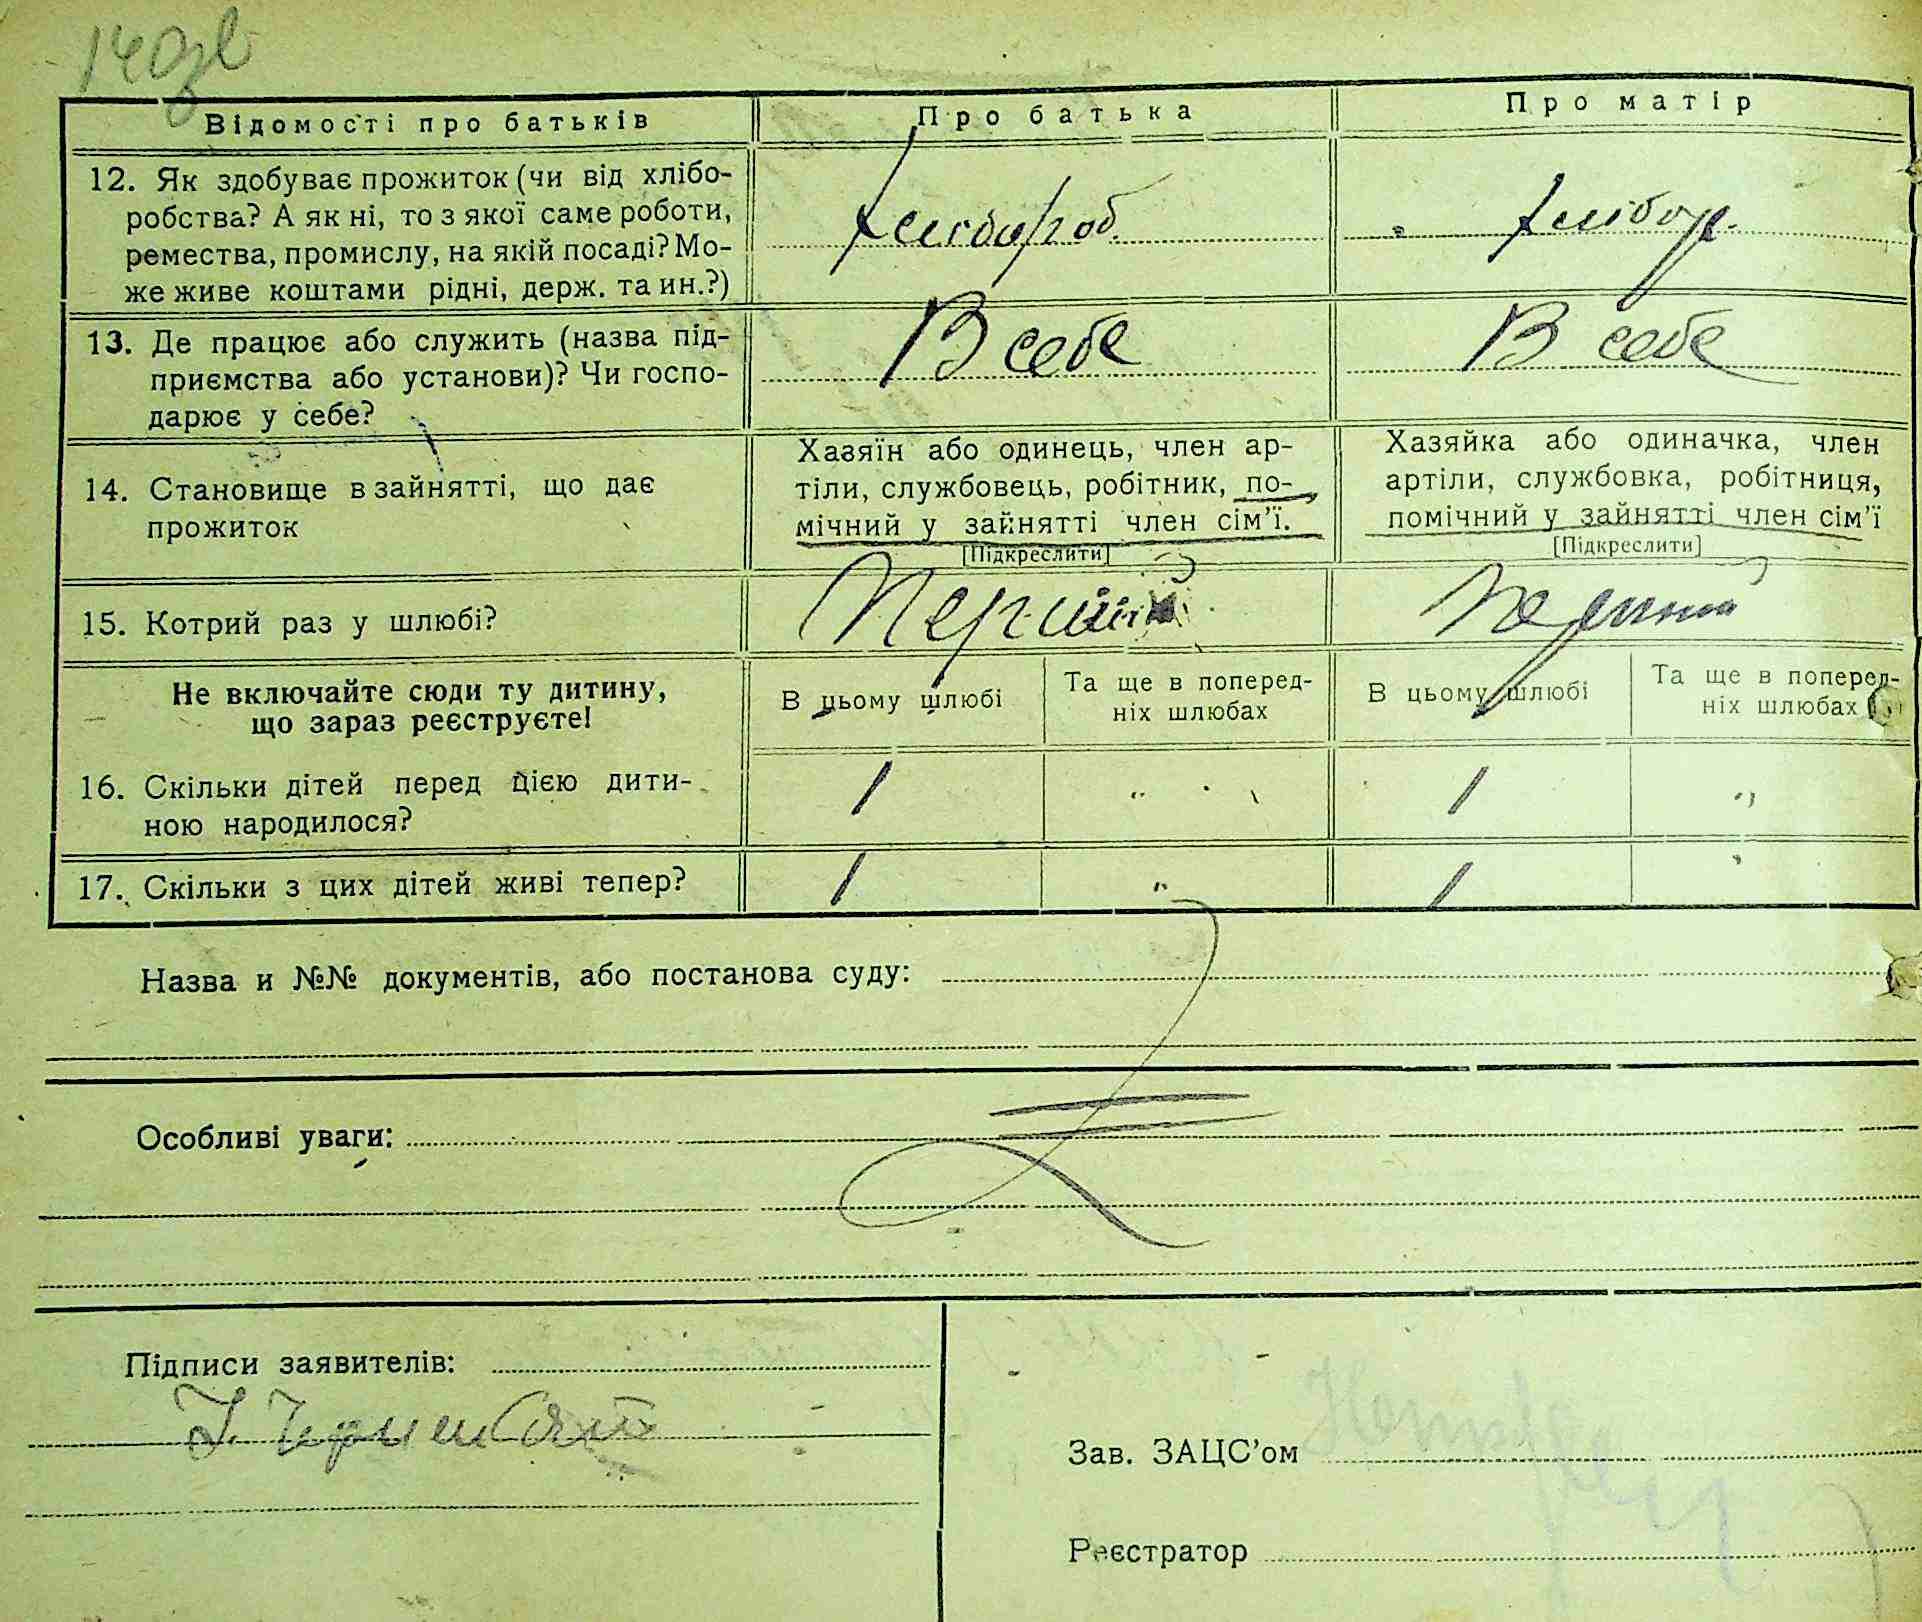 140зв
Відомості про батьків Про батька Про матір
12. Як здобуває прожиток (чи від хлібо-
робства? А як ні, то з якої саме роботи,
ремества, промислу, на якій посаді? Мо-
же живе коштами рідні, держ. та ин.?)
хлібороб. хлібор.
13. Де працює або служить (назва під-
приємства або установи)? Чи госпо-
дарює у себе?
В себе В себе
14. Становище в зайнятті, що дає
прожиток
Хазяїн або одинець, член ар-
тіли, службовець, робітник, по-
мічний у зайнятті член сім’ї.
[Підкреслити]
Хазяйка або одиначка, член
артіли, службовка, робітниця,
помічний у зайнятті член сім’ї
[Підкреслити]
15. Котрий раз у шлюбі? Перший Перший
Не включайте сюди ту дитину,
що зараз реєструєте!
В цьому шлюбі
Та ще в поперед-
ніх шлюбах
В цьому шлюбі
Та ще в поперед-
ніх шлюбах
16. Скільки дітей перед цією дити-
ною народилося?
1 " 1 "
17. Скільки з цих дітей живі тепер? 1 " 1 "
Назва и №№ документів, або постанова суду:
Особливі уваги:
Підписи заявителів:
Зав. ЗАЦС’ом
Реєстратор